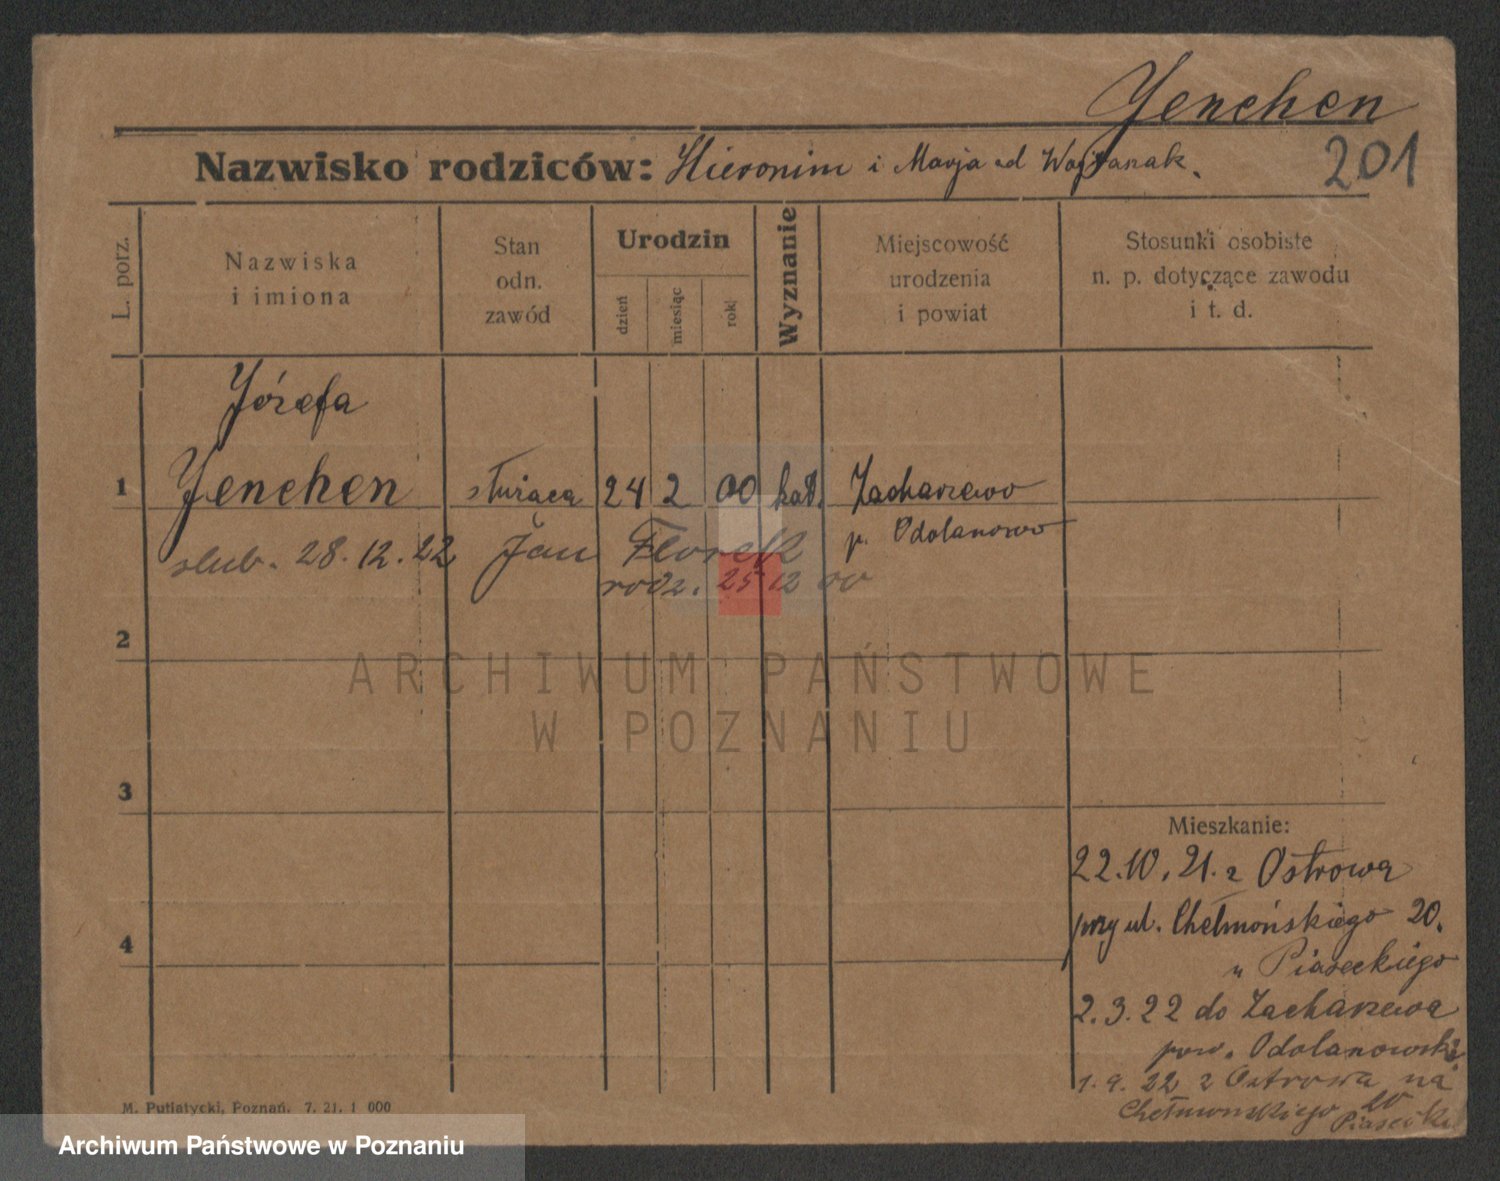 Yenchen
201
Nazwisko rodziców: Hieronim i Marja od Wojtasiak.
L. porz.
Nazwiska
i imiona
Stan
odn.
zawód
Urodzin
dzień
miesiąc
rok
Wyznanie
Miejscowość
urodzenia
i powiat
Stosunki osobiste
n. p. dotyczące zawodu
i t. d.
Józefa
1 Yenchen służąca 24 2 00 kat. Zacharzewo
p. Odolanowo
ślub. 28.12.22 Jan Florek
rodz. 25 12 00
2
ARCHIWUM PAŃSTWOWE
W POZNANIU
3
Mieszkanie:
22.10.21. z Ostrowa
przy ul. Chełmońskiego 20.
u Piaseckiego
4
2.3.22 do Zacharzewa
pow. Odolanowski
1.9.22 z Ostrowa na
Chełmońskiego 20
Piasecki
M. Putiatycki, Poznań. 7. 21. 1 000
Archiwum Państwowe w Poznaniu